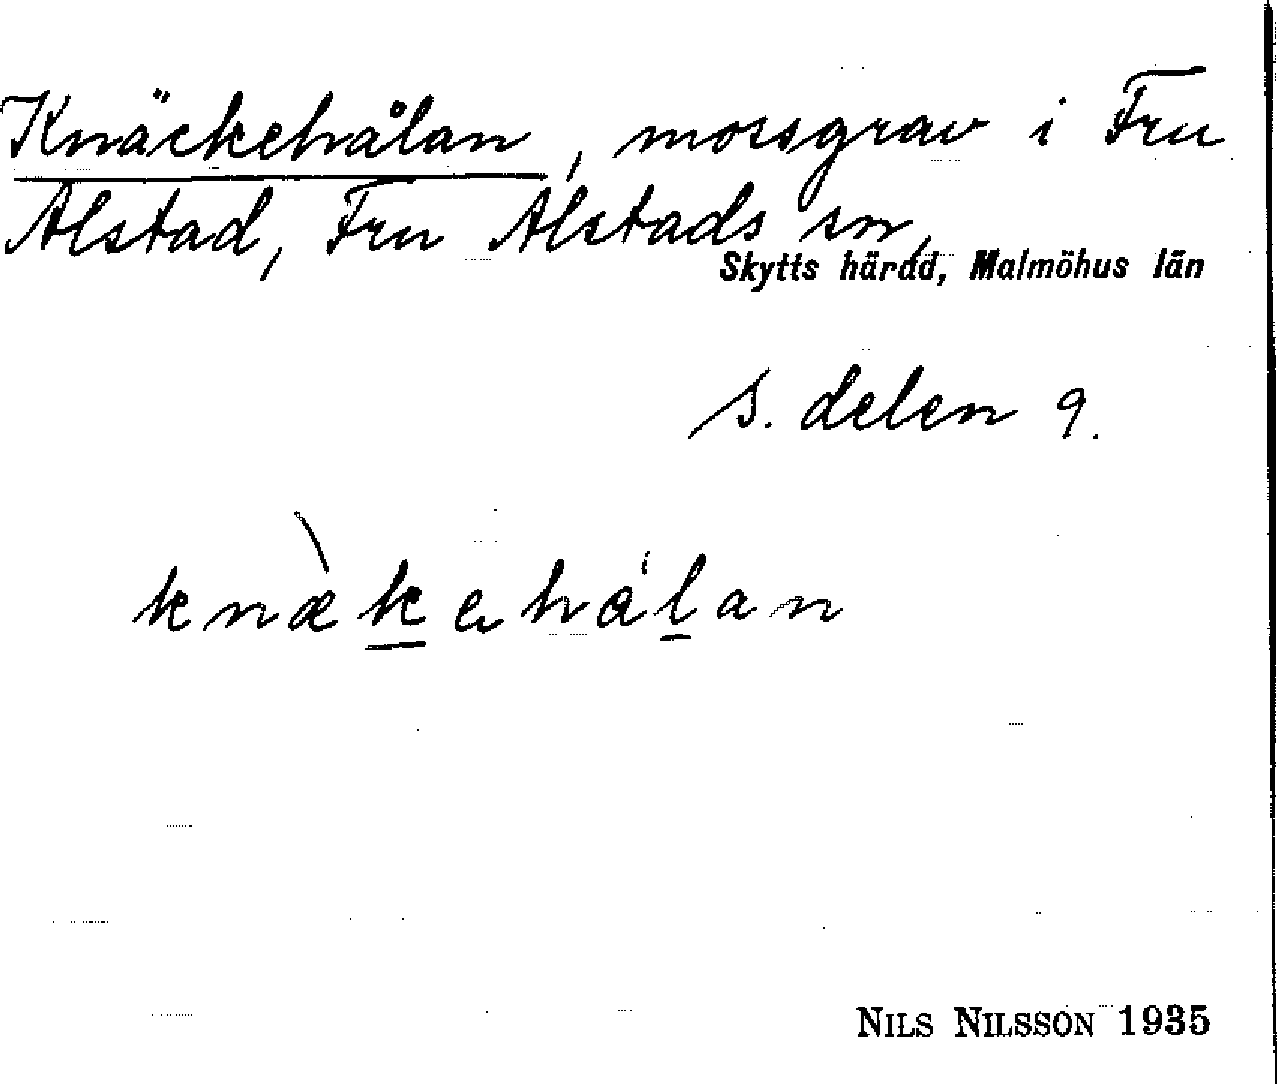 Knäckehålan, mossgrav i Fru
Alstad, Fru Alstads sn,
Skytts härad, Malmöhus län
S. delen 9.
knæ̀kehålan
NILS NILSSON 1935